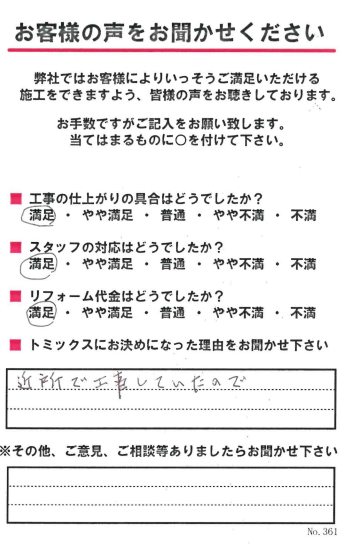 お客様の声をお聞かせください
弊社ではお客様によりいっそうご満足いただける
施工をできますよう、皆様の声をお聴きしております。
お手数ですがご記入をお願い致します。
当てはまるものに〇を付けて下さい。
■ 工事の仕上がりの具合はどうでしたか？
満足 ・ やや満足 ・ 普通 ・ やや不満 ・ 不満
■ スタッフの対応はどうでしたか？
満足 ・ やや満足 ・ 普通 ・ やや不満 ・ 不満
■ リフォーム代金はどうでしたか？
満足 ・ やや満足 ・ 普通 ・ やや不満 ・ 不満
■ トミックスにお決めになった理由をお聞かせ下さい
近所で工事していたので
※その他、ご意見、ご相談等ありましたらお聞かせ下さい
No. 361